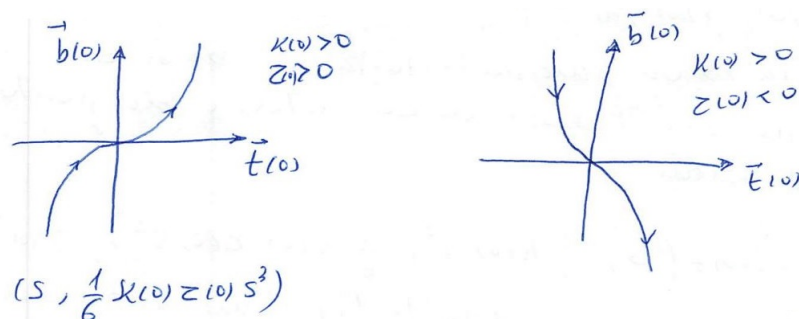 b⃗(0)
κ(0) > 0
τ(0) > 0
t⃗(0)
(s, 1/6 κ(0) τ(0) s³)
b⃗(0)
κ(0) > 0
τ(0) < 0
t⃗(0)